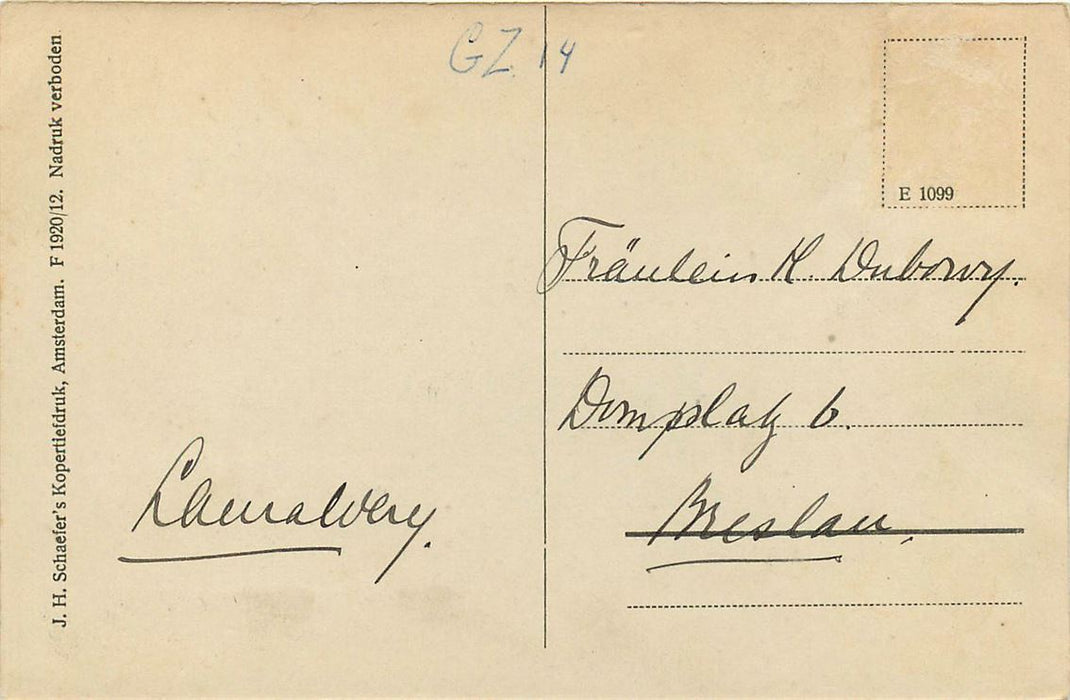 J. H. Schaefer's Kopertiefdruk, Amsterdam. F 1920/12. Nadruk verboden
GZ 14
E 1099
Fräulein K. Dubowy.
Domplatz 6.
Breslau,